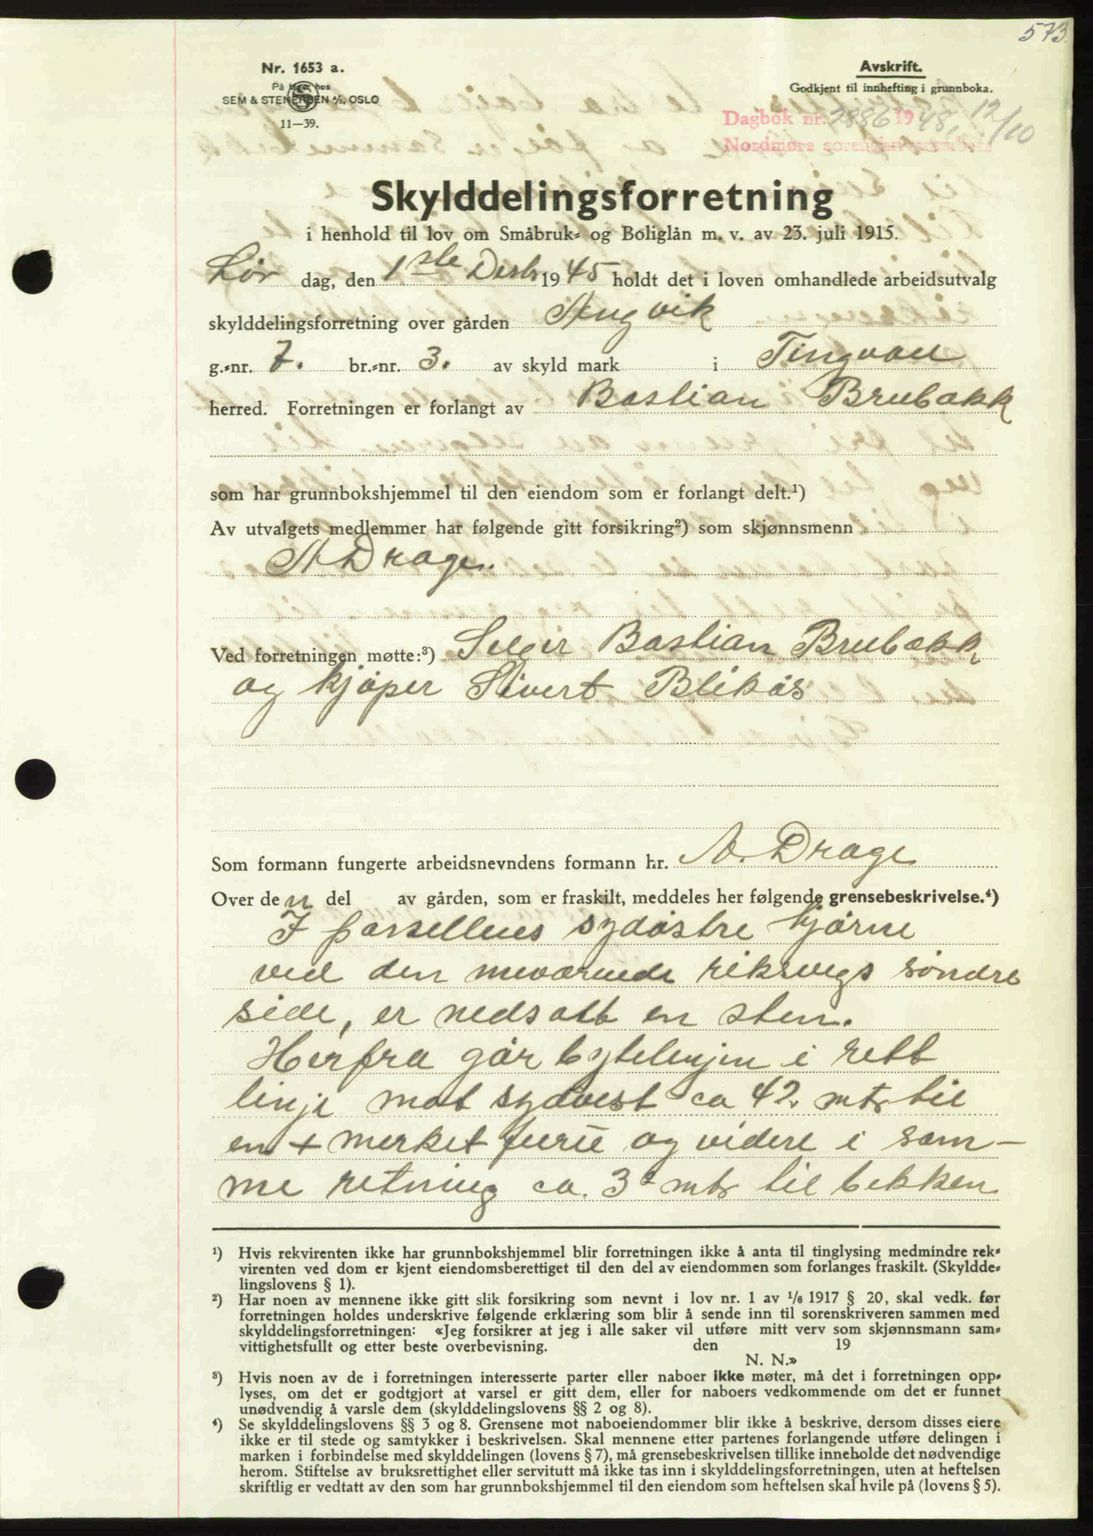 573.
Nr. 1653 a.
På lager hos
SEM & STENERSEN A/S, OSLO
11—39.
Avskrift.
Godkjent til innhefting i grunnboka.
Dagbok nr. 2886 1948, 12/10
Nordmøre sorenskriverembete
Skylddelingsforretning
i henhold til lov om Småbruk- og Boliglån m. v. av 23. juli 1915.
Lør dag, den 1ste Desbr 1945 holdt det i loven omhandlede arbeidsutvalg
skylddelingsforretning over gården Angvik
g.-nr. 7. br.-nr. 3. av skyld mark i Tingvoll
herred. Forretningen er forlangt av Bastian Brubakk
som har grunnbokshjemmel til den eiendom som er forlangt delt.¹)
Av utvalgets medlemmer har følgende gitt forsikring²) som skjønnsmenn
A Drage.
Ved forretningen møtte:³) Selger Bastian Brubakk
og kjøper Sivert Blikås
Som formann fungerte arbeidsnevndens formann hr. A. Drage
Over den del av gården, som er fraskilt, meddeles her følgende grensebeskrivelse.⁴)
I parsellens sydøstre hjørne
ved den nuværende riksvegs søndre
side, er nedsatt en sten.
Herfra går bytelinjen i rett
linje mot sydvest ca 42. mtr til
en + merket furu og videre i sam-
me retning ca. 3 mtr til bekken
¹) Hvis rekvirenten ikke har grunnbokshjemmel blir forretningen ikke å anta til tinglysing medmindre rek-
virenten ved dom er kjent eiendomsberettiget til den del av eiendommen som forlanges fraskilt. (Skyldde-
lingslovens § 1).
²) Har noen av mennene ikke gitt slik forsikring som nevnt i lov nr. 1 av 1/6 1917 § 20, skal vedk. før
forretningen holdes underskrive følgende erklæring som blir å sende inn til sorenskriveren sammen med
skylddelingsforretningen: «Jeg forsikrer at jeg i alle saker vil utføre mitt verv som skjønnsmann sam-
vittighetsfullt og etter beste overbevisning. den 19
N. N.»
³) Hvis noen av de i forretningen interesserte parter eller naboer ikke møter, må det i forretningen opp-
lyses, om det er godtgjort at varsel er gitt dem, eller for naboers vedkommende om det er funnet
unødvendig å varsle dem (skylddelingslovens §§ 2 og 8).
⁴) Se skylddelingslovens §§ 3 og 8. Grensene mot naboeiendommer blir ikke å beskrive, dersom disses eiere
ikke er til stede og samtykker i beskrivelsen. Skal mennene etter partenes forlangende utføre delingen i
marken i forbindelse med skylddelingen (lovens § 7), må grensebeskrivelsen tillike inneholde det nødvendige
herom. Stiftelse av bruksrettighet eller servitutt må ikke tas inn i skylddelingsforretningen, uten at heftelsen
skriftlig er vedtatt av den som har grunnbokshjemmel til den eiendom som heftelsen skal hvile på (lovens § 5).